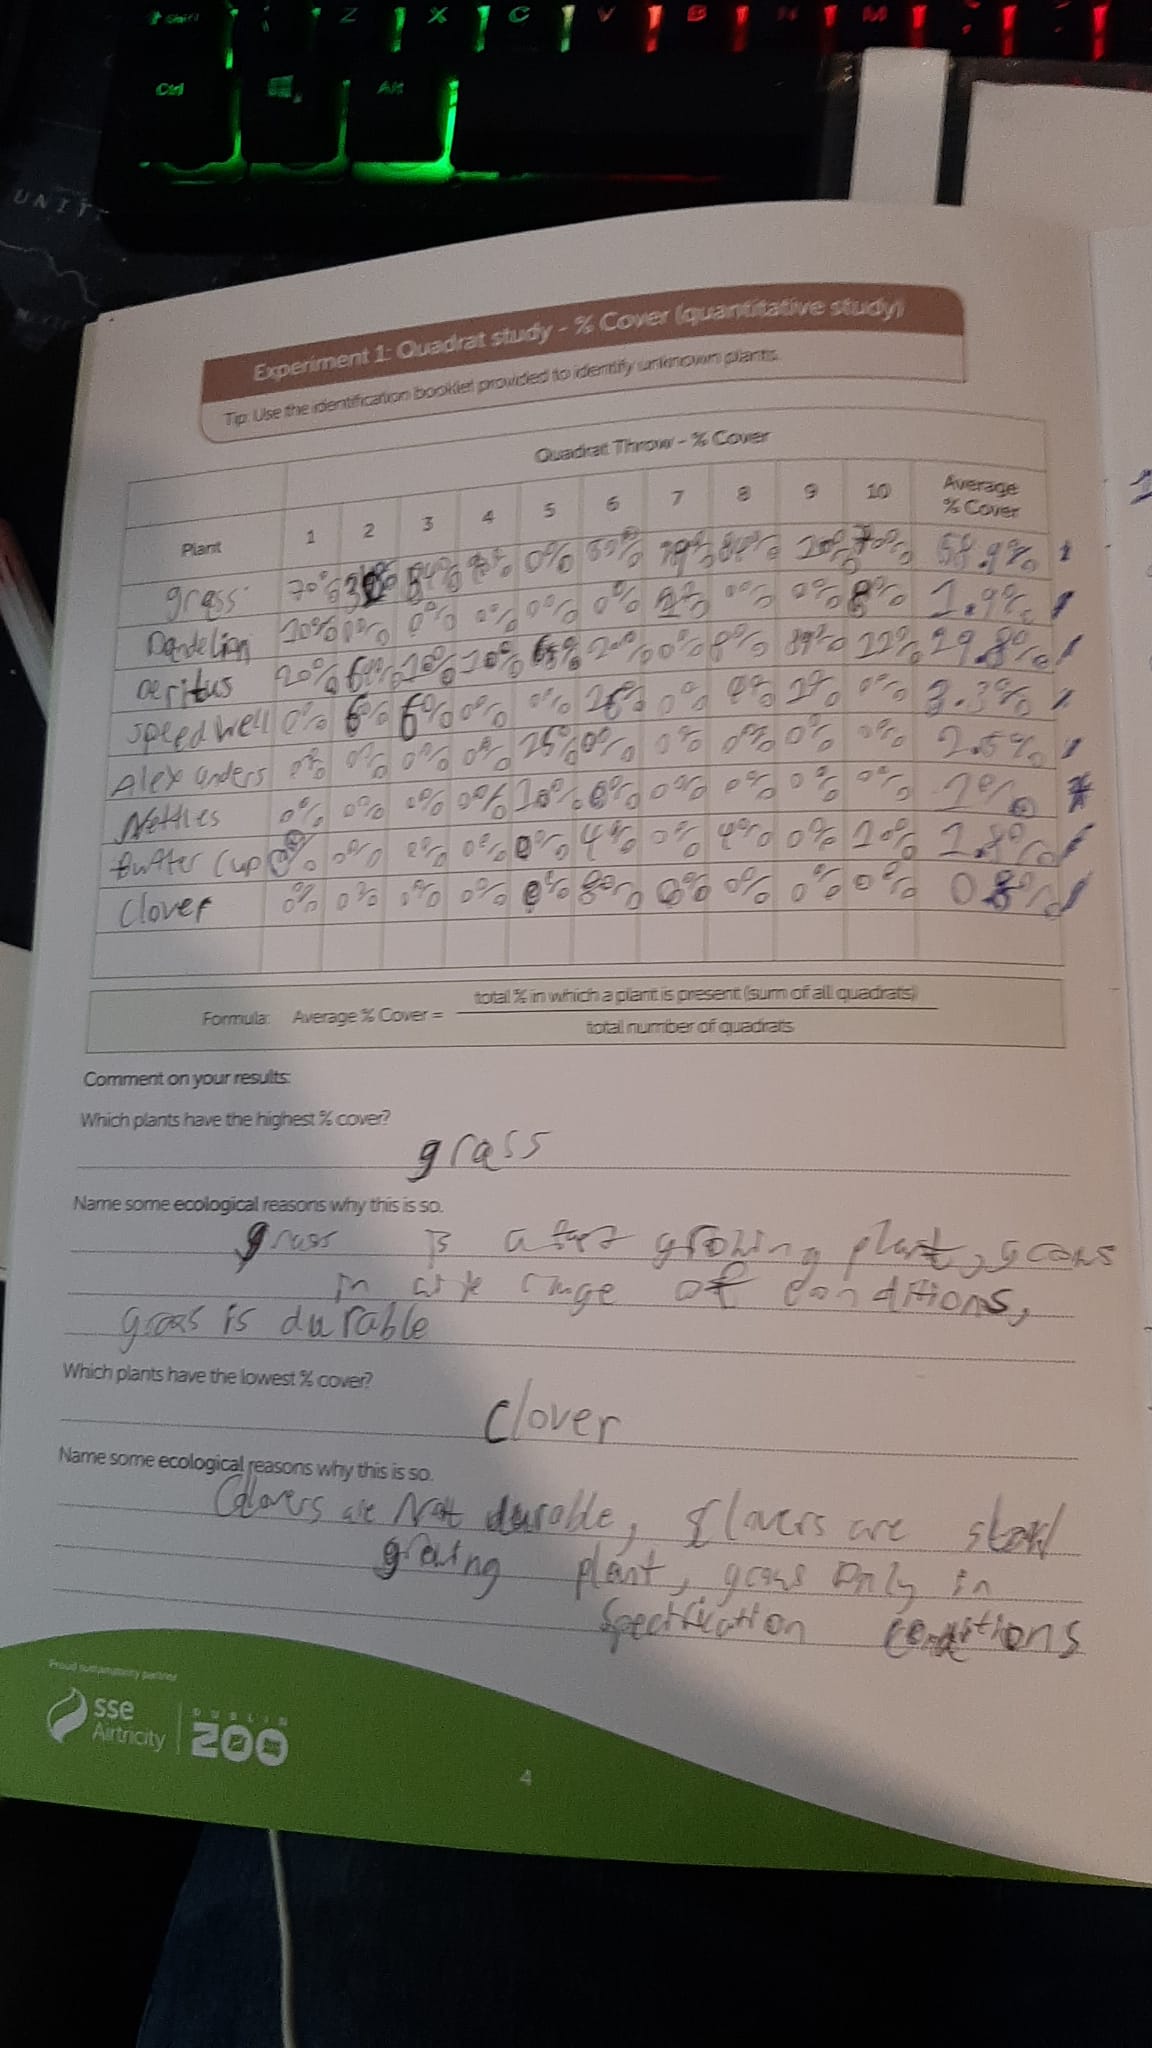 Shift
Z X C V B N M
Ctrl Alt
UNIT
Experiment 1: Quadrat study - % Cover (quantitative study)
Tip: Use the identification booklet provided to identify unknown plants.
Quadrat Throw - % Cover
Plant 1 2 3 4 5 6 7 8 9 10 Average % Cover
grass 70% 0% 58.9%
Dandelion 10% 0% 0% 0% 0% 0% 0% 0% 8% 1.9%
20% 10% 10% 20% 0% 8% 22% 29.8%
speedwell 0% 6% 6% 0% 0% 0% 0% 3.3%
Alex anders 0% 0% 0% 0% 25% 0% 0% 0% 0% 0% 2.5%
Nettles 0% 0% 0% 0% 10% 0% 0% 0% 0% 0% 1%
Butter Cup 0% 0% 0% 0% 0% 4% 0% 4% 0% 10% 1.8%
Clover 0% 0% 0% 0% 0% 8% 0% 0% 0% 0% 0.8%
Formula: Average % Cover = total % in which a plant is present (sum of all quadrats)
total number of quadrats
Comment on your results:
Which plants have the highest % cover?
grass
Name some ecological reasons why this is so.
grass is a fast growing plant, grows
in range of conditions,
grass is durable
Which plants have the lowest % cover?
Clover
Name some ecological reasons why this is so.
Clovers are Not durable, are slow
growing plant, grows only in
Specification conditions
Proud sustainability partner
sse
Airtricity
DUBLIN
ZOO
4